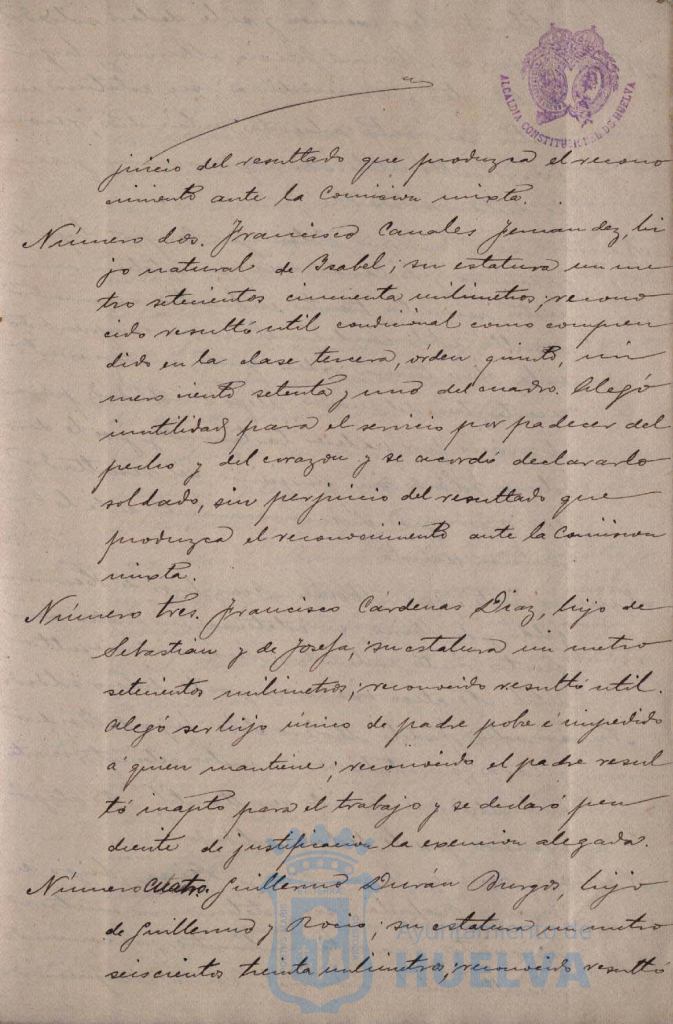 ALCALDIA CONSTITUCIONAL DE HUELVA
juicio del resultado que produzca el recono
cimiento ante la Comision mixta.
Número dos. Francisco Canales Fernandez, hi
jo natural de Isabel; su estatura un me
tro setecientos cincuenta milimetros; recono
cido resultó util condicional como compren
dido en la clase tercera, órden quinto, nú
mero ciento setenta y uno del cuadro. Alegó
inutilidad para el servicio por padecer del
pecho y del corazon y se acordó declararlo
soldado, sin perjuicio del resultado que
produzca el reconocimiento ante la Comision
mixta.
Número tres. Francisco Cárdenas Diaz, hijo de
Sebastián y de Josefa, su estatura un metro
setecientos milimetros; reconocido resultó util.
Alegó ser hijo único de padre pobre é impedido
á quien mantiene; reconocido el padre resul
tó inapto para el trabajo y se declaró pen
diente de justificacion la exencion alegada.
Número cuatro. Guillermo Durán Burgos, hijo
de Guillermo y Rocio; su estatura un metro
seiscientos treinta milimetros; reconocido resultó
Ayuntamiento de
HUELVA